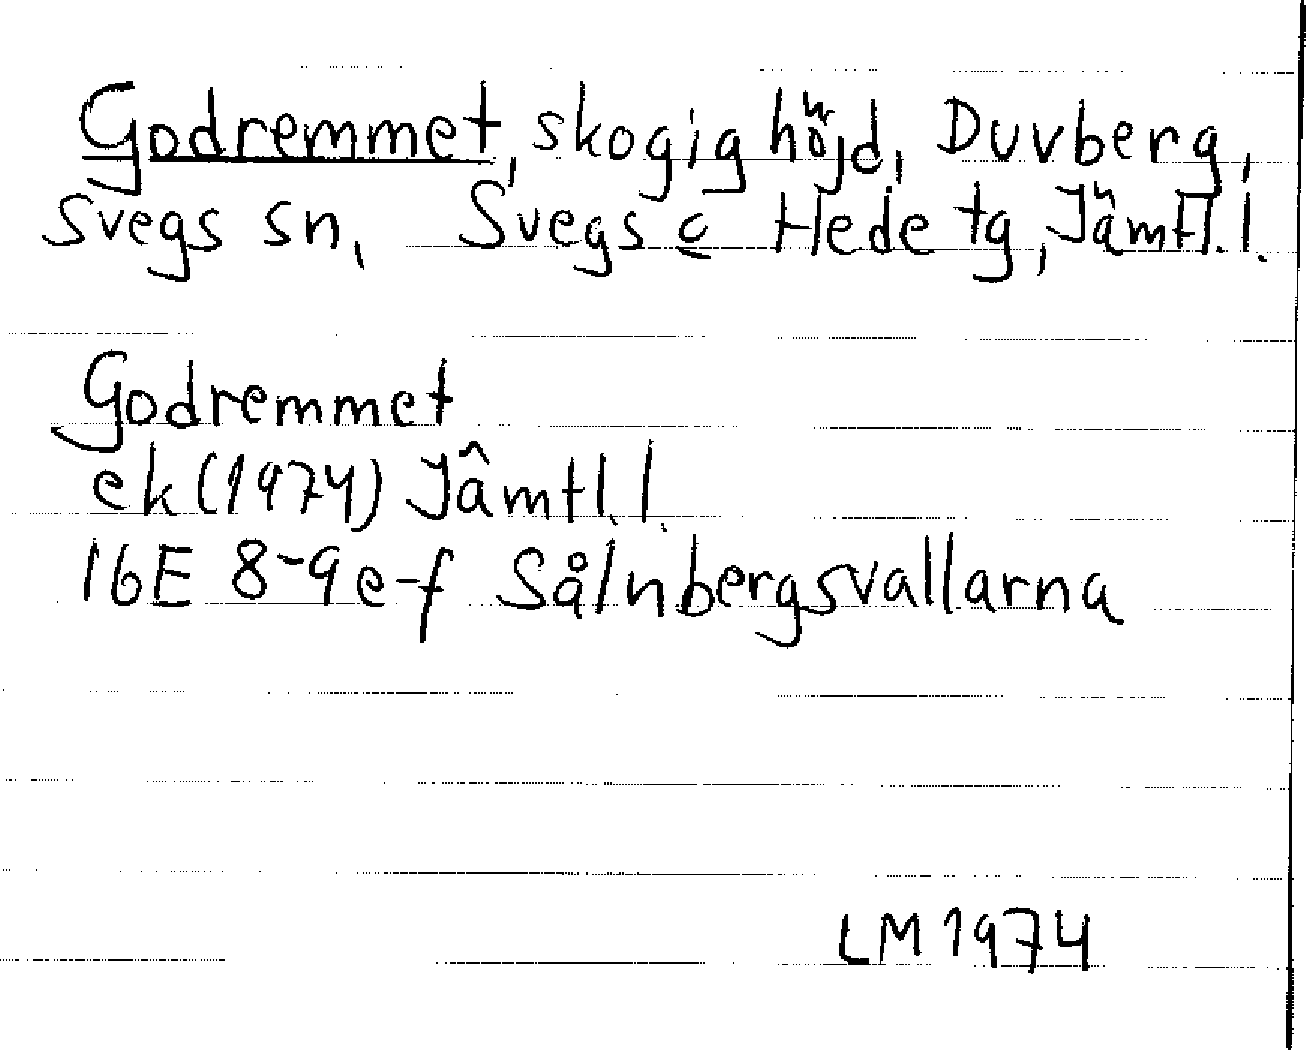 Godremmet, skogig höjd, Duvberg,
Svegs sn, Svegs o Hede tg, Jämtl. l.
Godremmet
ek (1974) Jämtl. l.
16E 8-9 e-f Sålnbergsvallarna
LM 1974